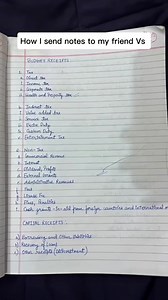 How I send notes to my friend Vs
BUDGET RECEIPTS :
Tax
Direct tax
Income tax
Corporate tax
Wealth and Property tax
Indirect tax
Value added tax
Service tax
Excise Duty
Custom Duty
Entertainment Tax
Non-Tax
Commercial Revenue
Interest
Dividend, Profits
External Grants
Administrative Revenues
Fees
License Fee
Fines, Penalties
Cash grants-in-aid from foreign countries and international
CAPITAL RECEIPTS :
Borrowings and Other liabilities
Recovery of Loans
Other receipts (disinvestment)